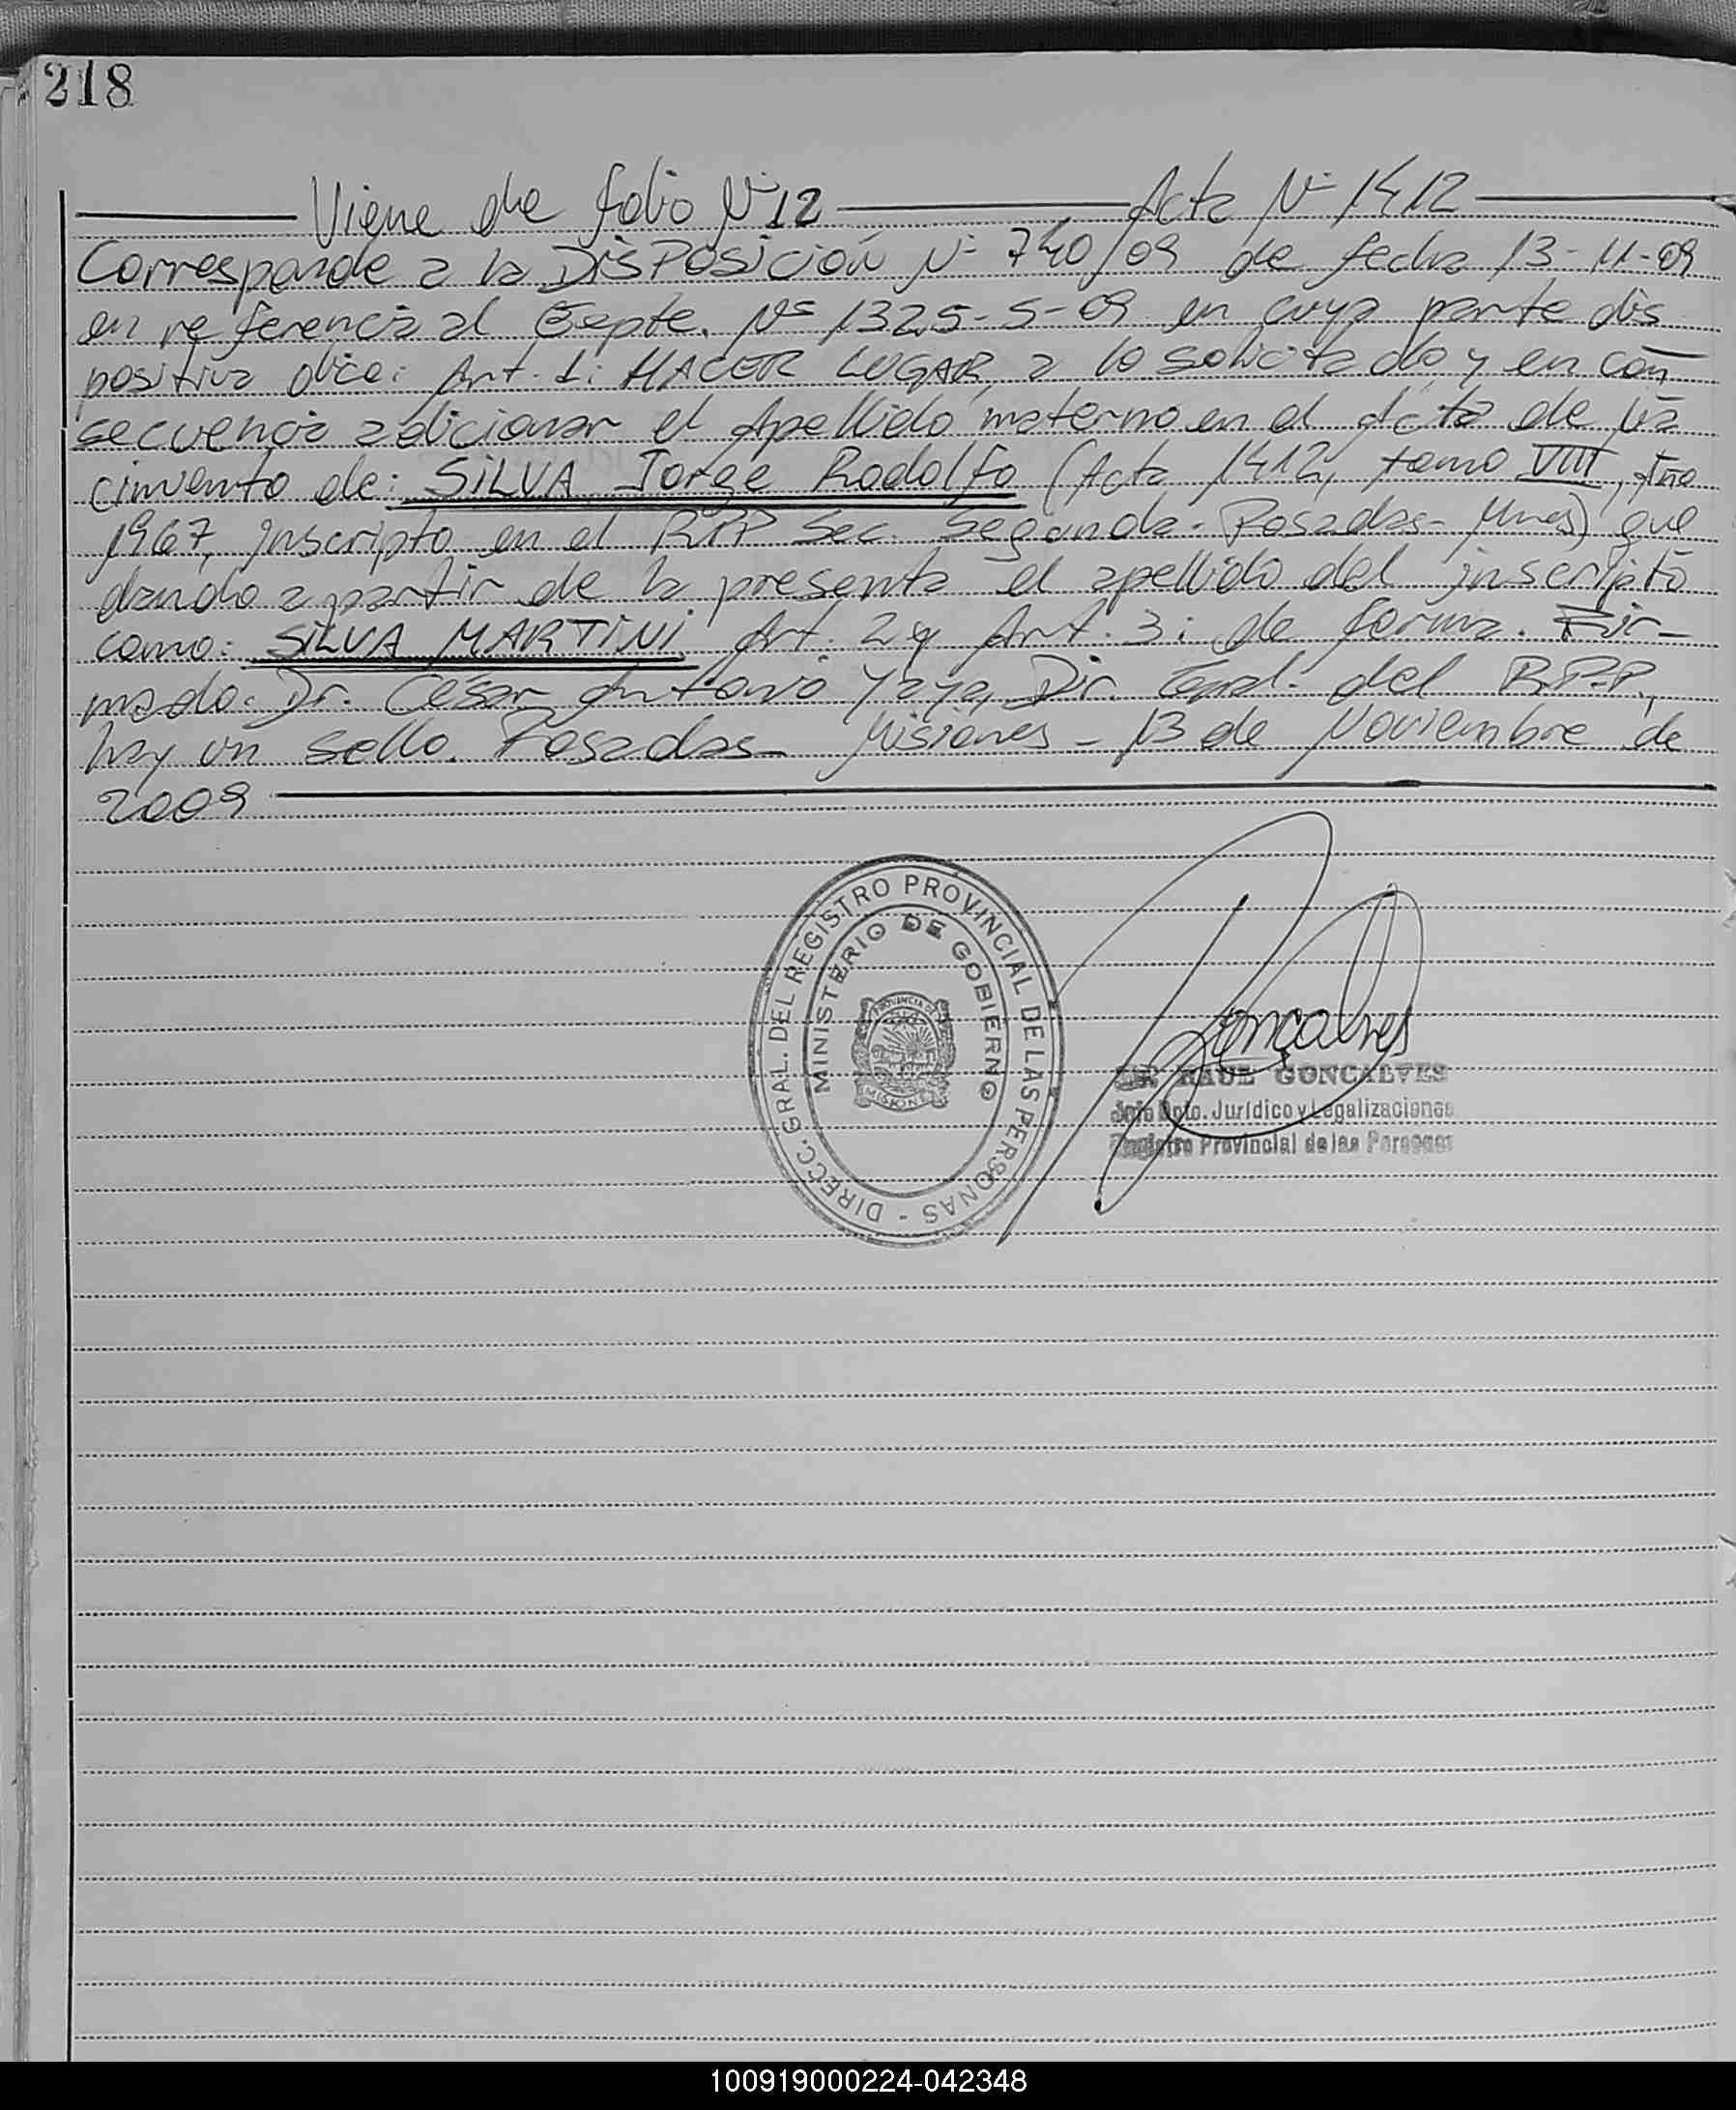 218
Viene de folio Nº 12 Acta Nº 1412
Corresponde a la DISPOSICIÓN Nº 740/09 de fecha 13-11-09
en referencia al Expte. Nº 1325-S-09 en cuya parte dis
positiva dice: Art. 1: HACER LUGAR, a lo solicitado y en con
secuencia adicionar el Apellido materno en el Acta de Na
cimiento de: SILVA, Jorge Rodolfo (Acta 1412, tomo VIII, Año
1967, Inscripto en el RPP Sec. Segunda- Posadas- Mnes) que
dando a partir de la presente el apellido del inscripto
como: SILVA MARTINI. Art. 2 y Art. 3: de forma. Fir-
mado: Dr. César Antonio Yaya, Dir. Gral. del R.P.P.,
hay un sello. Posadas- Misiones - 13 de Noviembre de
2009
DIRECC. GRAL. DEL REGISTRO PROVINCIAL DE LAS PERSONAS -
MINISTERIO DE GOBIERNO
PROVINCIA DE
MISIONES
Goncalves
RAUL GONCALVES
Jefe Dpto. Jurídico y Legalizaciones
Registro Provincial de las Personas
100919000224-042348